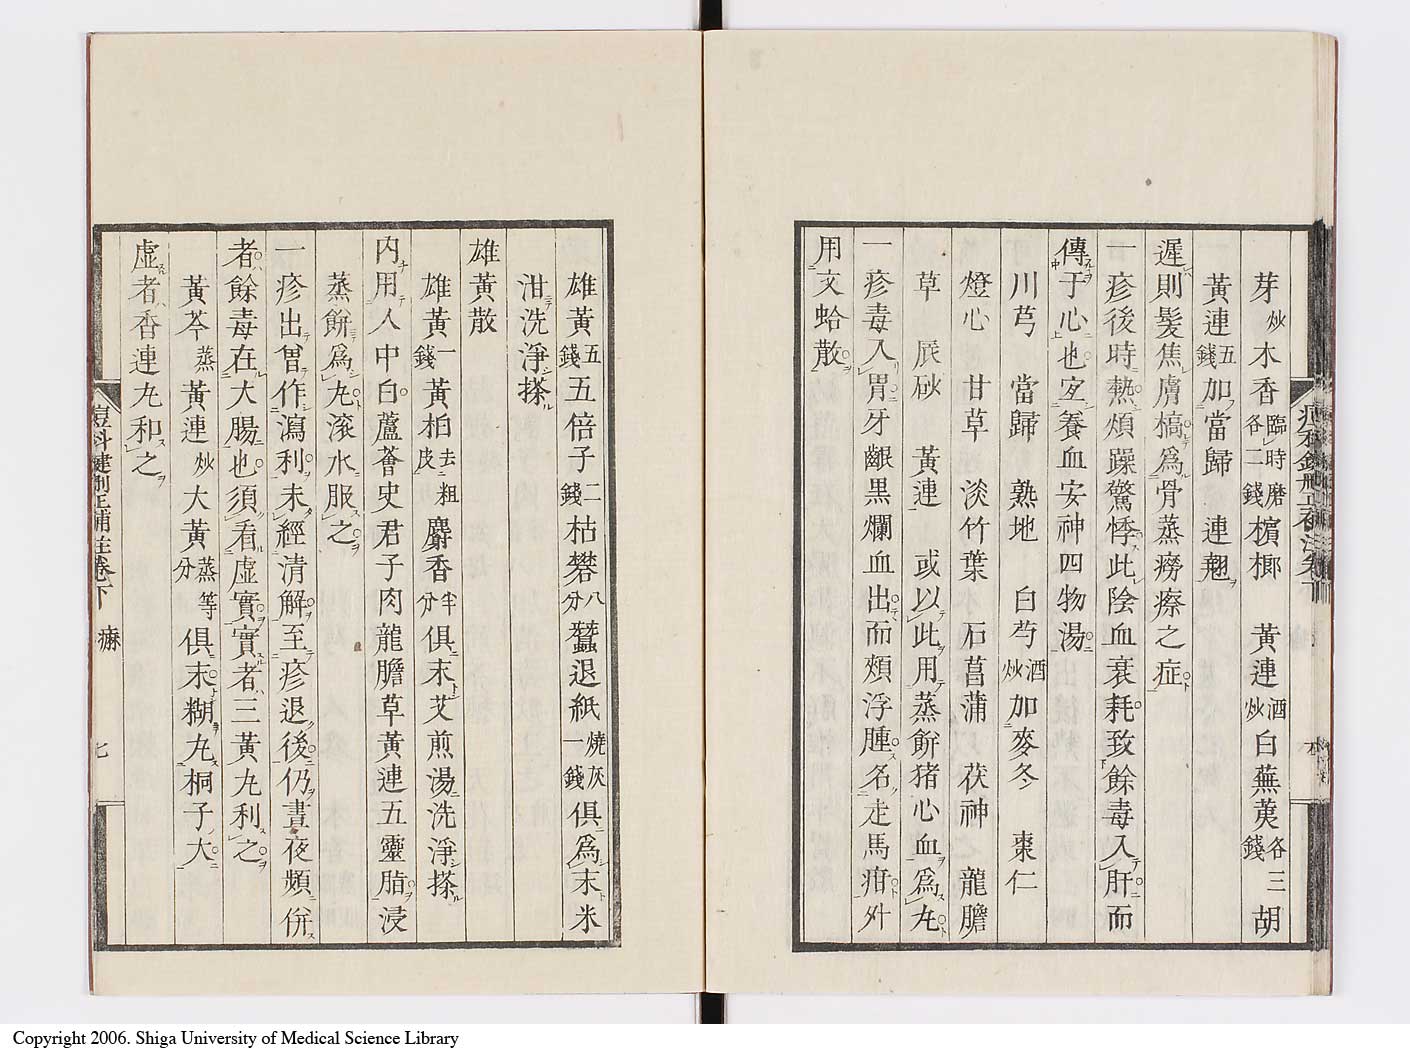 芽炒木香臨時磨各二錢檳榔　黃連酒炒白蕪荑各三錢胡
黃連五錢加當歸　連翹
遲則髮焦膚槁爲骨蒸癆瘵之症
一疹後時熱煩躁驚悸此陰血衰耗致餘毒入肝而
傳于心也宐養血安神四物湯
川芎　當歸　熟地　白芍酒炒加麥冬　棗仁
燈心　甘草　淡竹葉　石菖蒲　茯神　龍膽
草　辰砂　黃連　或以此用蒸餅猪心血爲丸
一疹毒入胃牙齦黑爛血出而頰浮腫名走馬疳外
用文蛤散
雄黃五錢五倍子二錢枯礬八分蠶退紙燒灰一錢俱爲末米
泔洗淨搽
雄黃散
雄黃一錢黃柏去粗皮麝香半分俱末艾煎湯洗淨搽
內用人中白蘆薈史君子肉龍膽草黃連五靈脂浸
蒸餅爲丸滾水服之
一疹出曾作瀉利未經清解至疹退後仍晝夜頻併
者餘毒在大腸也須看虛實實者三黃丸利之
黃芩蒸黃連炒大黃蒸等分俱末糊丸桐子大
虛者香連丸和之
痘科鍵刪正補註卷下　痳　七